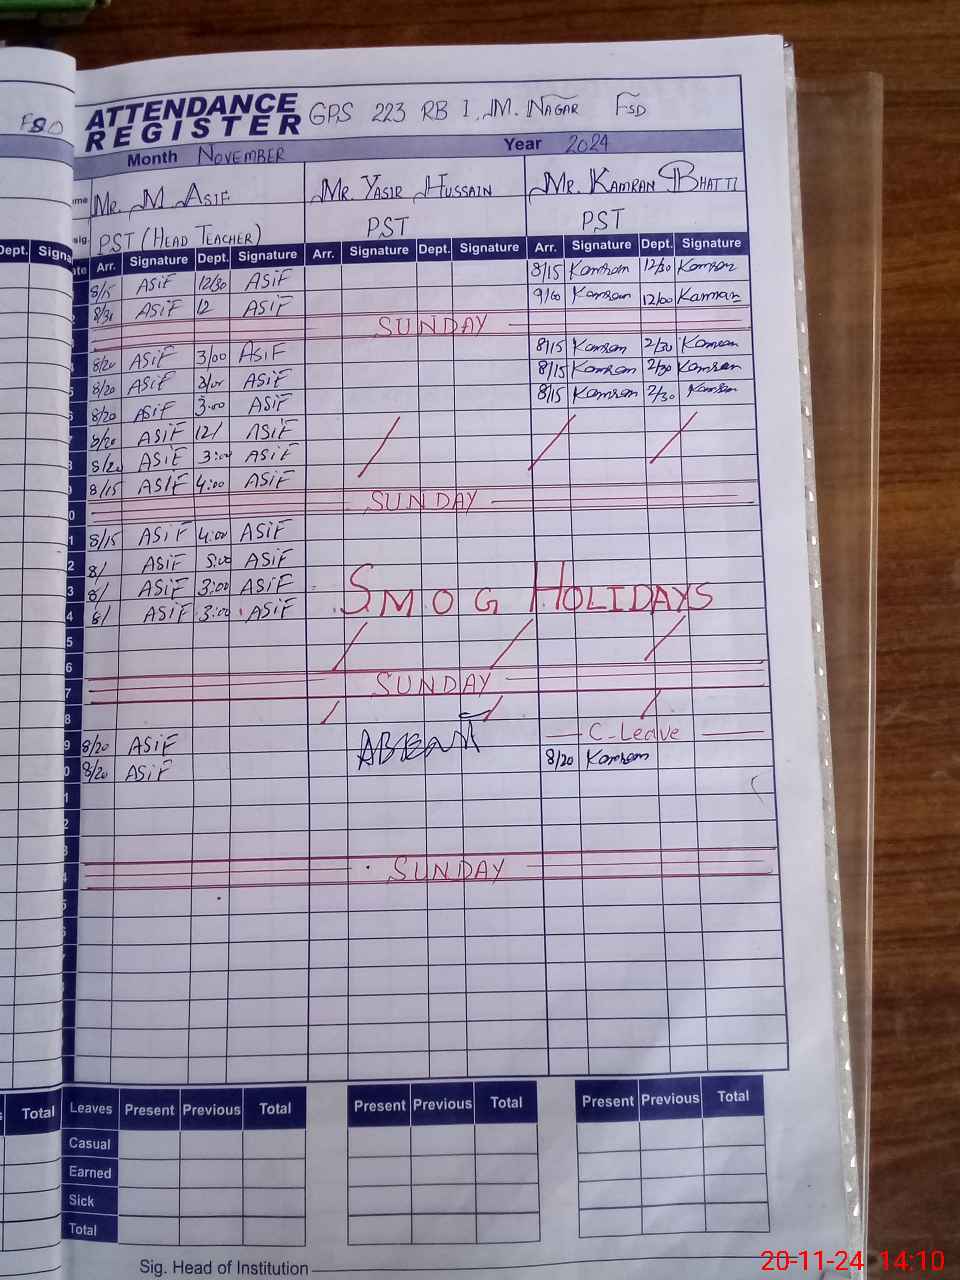 FSD
ATTENDANCE REGISTER GPS 223 RB I, M. NAGAR FSD
Month NOVEMBER Year 2024
Mr. M. ASIF Mr. YASIR HUSSAIN Mr. KAMRAN BHATTI
PST (HEAD TEACHER) PST PST
Dept. Arr. Signature Dept. Signature Arr. Signature Dept. Signature Arr. Signature Dept. Signature
8/15 ASIF 12/30 ASIF 8/15 Kamran 12/30 Kamran
8/30 ASIF 12 ASIF 9/00 Kamran 12/00 Kamran
SUNDAY
8/20 ASIF 3/00 ASIF 8/15 Kamran 2/30 Kamran
8/20 ASIF 3/00 ASIF 8/15 Kamran 2/30 Kamran
8/20 ASIF 3:00 ASIF 8/15 Kamran 2/30 Kamran
8/20 ASIF 12/ ASIF
8/20 ASIF 3:00 ASIF
8/15 ASIF 4:00 ASIF
SUNDAY
8/15 ASIF 4:00 ASIF
8/ ASIF 5:00 ASIF
8/ ASIF 3:00 ASIF
8/ ASIF 3:00 ASIF
SMOG HOLIDAYS
SUNDAY
C-Leave
8/20 ASIF
8/20 ASIF 8/20 Kamran
SUNDAY
Total Leaves Present Previous Total Present Previous Total Present Previous Total
Casual
Earned
Sick
Total
Sig. Head of Institution
20-11-24 14:10